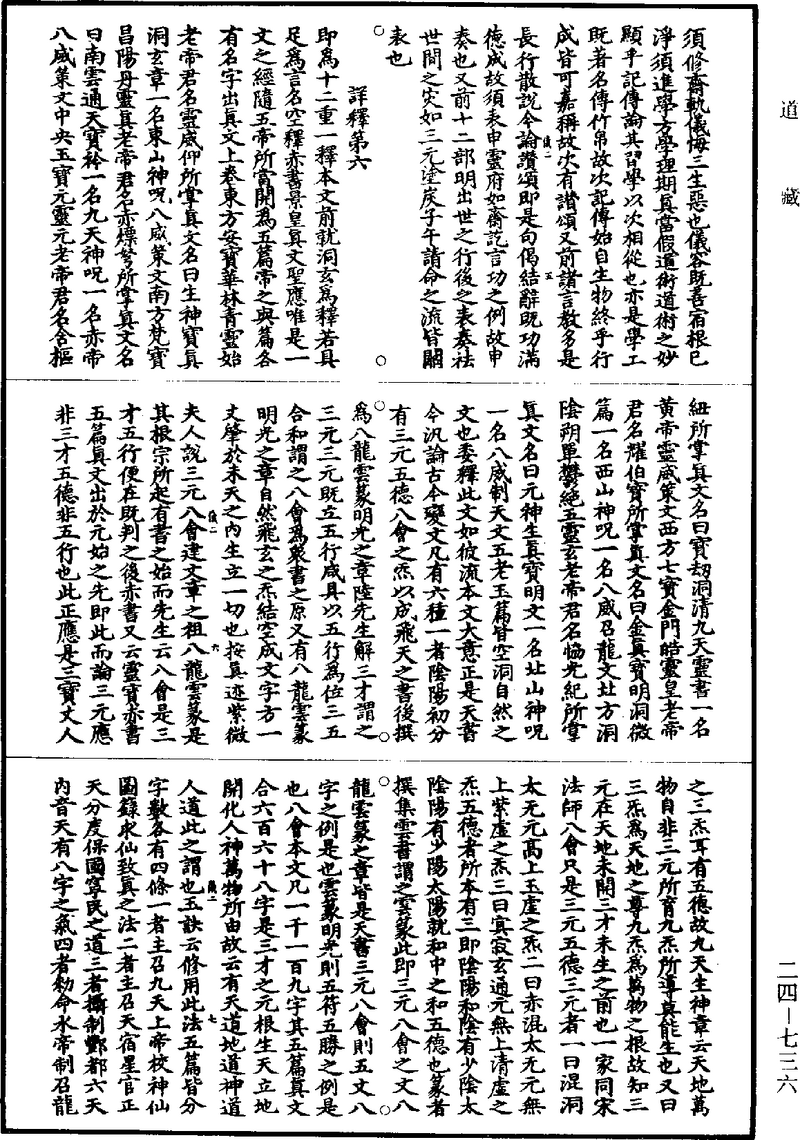 道藏
須修齋軌儀悔三生𢙣也儀容旣善宿根已
淨須進學方學理期眞當假道術道術之妙
顯乎記傳論其習學以次相從也亦是學工
旣著名傳竹帛故次記傳始自生物終乎行
成皆可嘉稱故次有讃頌又前諸言教多是
儀二 五
長行散說今論讃頌即是句偈結辭旣功滿
德成故須表申靈府如齋訖言功之例故申
奏也又前十二部明出世之行後之表奏祛
世間之灾如三元塗炭子午請命之流皆關
表也
詳釋第六
即爲十二重一釋本文前就洞玄爲釋若具
足爲言名空釋赤書景皇眞文聖應唯是一
文之經隨五帝所當開爲五篇帝之與篇各
有名字出眞文上卷東方安寶華林青靈始
老帝君名靈威仰所掌眞文名曰生神寶眞
洞玄章一名東山神呪八威策文南方梵寶
昌陽丹靈眞老帝君名赤熛弩所掌眞文名
曰南雲通天寶衿一名九天神呪一名赤帝
八威策文中央玉寶元靈元老帝君名含樞
紐所掌眞文名曰寶劫洞清九天靈書一名
黃帝靈威策文西方七寶金門皓靈皇老帝
君名耀伯寶所掌眞文名曰金眞寶明洞微
篇一名西山神呪一名八威召龍文北方洞
陰朔單鬱絶五靈玄老帝君名協光紀所掌
眞文名曰元神生眞寶明文一名北山神呪
一名八威制天文五老玉篇皆空洞自然之
文也委釋此文如彼流本文大意正是天書
今汎論古今變文凡有六種一者陰陽初分
有三元五德八會之炁以成飛天之書後撰
爲八龍雲篆明光之章陸先生解三才謂之
三元三元旣立五行咸具以五行爲位三五
合和謂之八會爲衆書之原又有八龍雲篆
明光之章自然飛玄之炁結空成文字方一
丈肇於未天之內生立一切也按眞迹紫微
儀二 六
夫人說三元八會建文章之祖八龍雲篆是
其根宗所起有書之始而先生云八會是三
才五行便在旣判之後赤書又云靈寶赤書
五篇眞文出於元始之先即此而論三元應
非三才五德非五行也此正應是三寶丈人
之三炁耳有五德故九天生神章云天地萬
物自非三元所育九炁所導莫能生也又曰
三炁爲天地之尊九炁爲萬物之根故知三
元在天地未開三才未生之前也一家同宋
法師八會只是三元五德三元者一曰混洞
太无元高上玉虛之炁二曰赤混太无元無
上紫虛之炁三曰寞寂玄通元無上清虛之
炁五德者所本有三即陰陽和陰有少陰太
陰陽有少陽太陽就和中之和五德也篆者
撰集雲書謂之雲篆此即三元八會之文八
龍雲篆之章皆是天書三元八會則五文八
字之例是也雲篆明光則五符五勝之例是
也八會本文凡一千一百九字其五篇眞文
合六百六十八字是三才之元根生天立地
開化人神萬物所由故云有天道地道神道
儀二 七
人道此之謂也玉訣云修用此法五篇皆分
字數各有四條一者主召九天上帝校神仙
圖籙求仙致眞之法二者主召天宿星官正
天分度保國寧民之道三者攝制酆都六天
內音天有八字之氣四者勑命水帝制召龍
二四—七三六